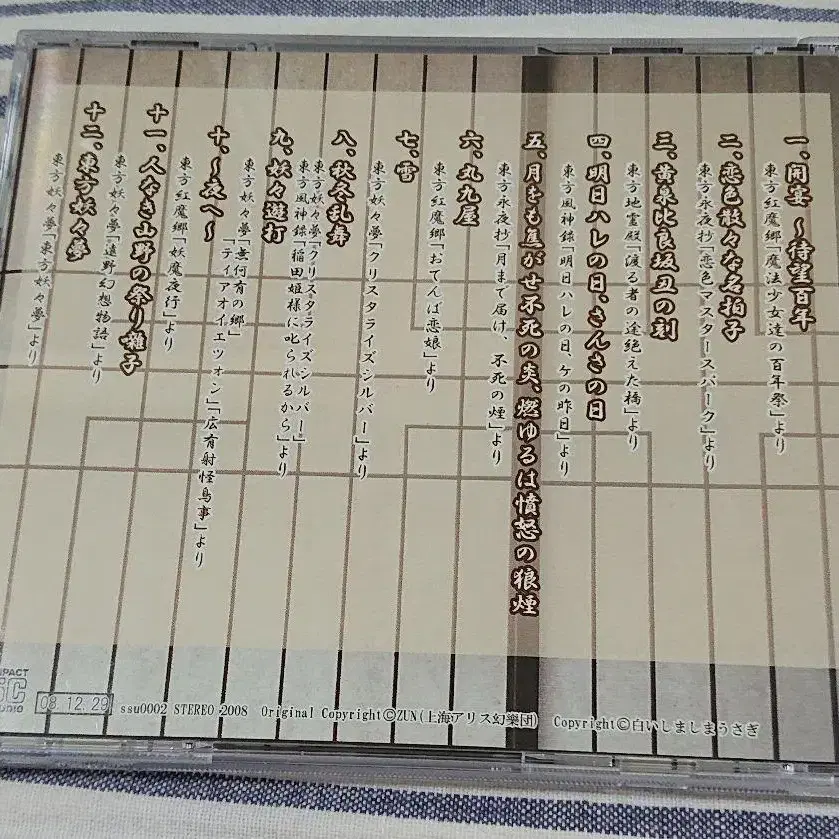 一、開宴 ～待望百年
東方紅魔郷「魔法少女達の百年祭」より
二、恋色散々な名拍子
東方永夜抄「恋色マスタースパーク」より
三、黄泉比良坂丑の刻
東方地霊殿「渡る者の途絶えた橋」より
四、明日ハレの日、さんさの日
東方風神録「明日ハレの日、ケの昨日」より
五、月をも焦がせ不死の炎、燃ゆるは憤怒の狼煙
東方永夜抄「月まで届け、不死の煙」より
六、丸九屋
東方紅魔郷「おてんば恋娘」より
七、雪
東方妖々夢「クリスタライズシルバー」より
八、秋冬乱舞
東方妖々夢「クリスタライズシルバー」
東方風神録「稲田姫様に叱られるから」より
九、妖々遊打
東方妖々夢「無何有の郷」
「ティアオイエツォン」「広有射怪鳥事」より
十、～夜へ～
東方紅魔郷「妖魔夜行」より
十一、人なき山野の祭り囃子
東方妖々夢「遠野幻想物語」より
十二、東方妖々夢
東方妖々夢「東方妖々夢」より
08.12.29
ssu0002 STEREO 2008 Original Copyright©ZUN(上海アリス幻樂団) Copyright©白いしましまうさぎ